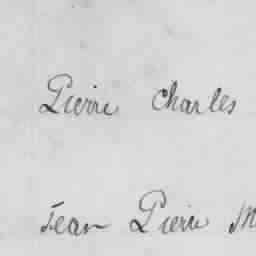 Pierre Charles
Jean Pierre M